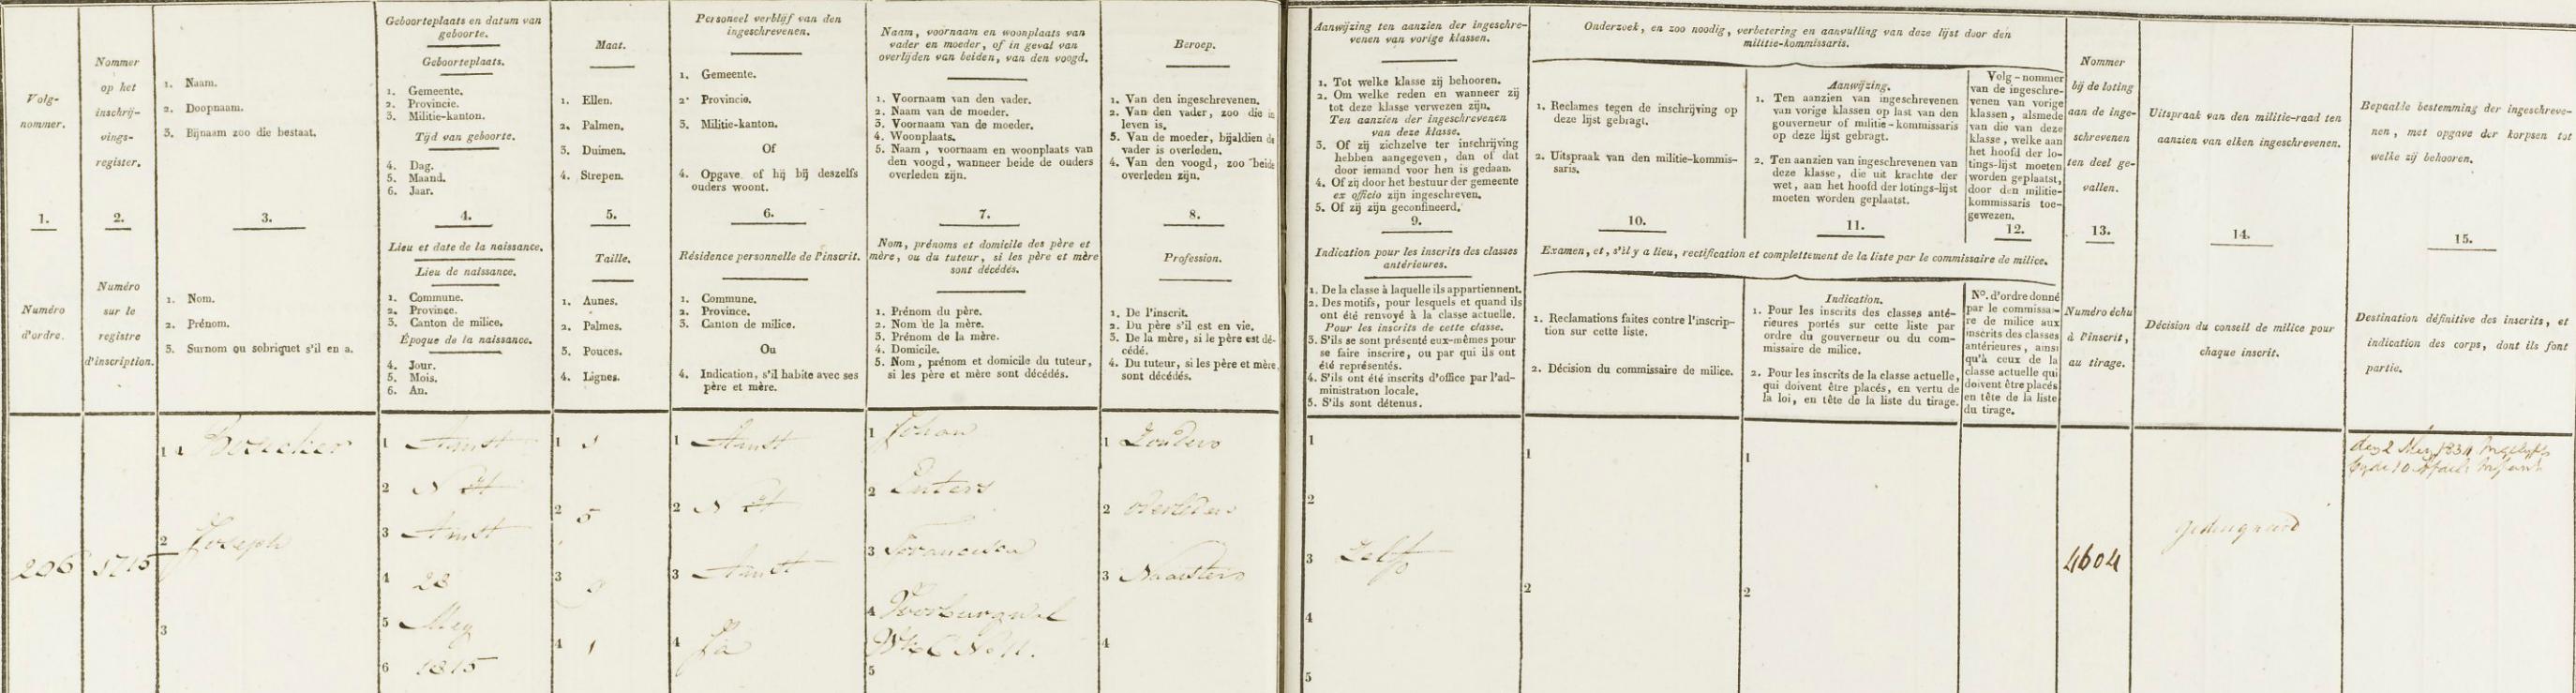 Volg-
nommer.
1.
Numéro
d'ordre.
Nommer
op het
inschrij-
vings-
register.
2.
Numéro
sur le
registre
d'inscription.
1. Naam.
2. Doopnaam.
3. Bijnaam zoo die bestaat.
3.
1. Nom.
2. Prénom.
3. Surnom ou sobriquet s'il en a.
Geboorteplaats en datum van
geboorte.
Geboorteplaats.
1. Gemeente.
2. Provincie.
3. Militie-kanton.
Tijd van geboorte.
4. Dag.
5. Maand.
6. Jaar.
4.
Lieu et date de la naissance.
Lieu de naissance.
1. Commune.
2. Province.
3. Canton de milice.
Époque de la naissance.
4. Jour.
5. Mois.
6. An.
Maat.
1. Ellen.
2. Palmen.
3. Duimen.
4. Strepen.
5.
Taille.
1. Aunes.
2. Palmes.
3. Pouces.
4. Lignes.
Personeel verblijf van den
ingeschrevenen.
1. Gemeente.
2. Provincie.
3. Militie-kanton.
Of
4. Opgave of hij bij deszelfs
ouders woont.
6.
Résidence personnelle de l'inscrit.
1. Commune.
2. Province.
3. Canton de milice.
Ou
4. Indication, s'il habite avec ses
père et mère.
Naam, voornaam en woonplaats van
vader en moeder, of in geval van
overlijden van beiden, van den voogd.
1. Voornaam van den vader.
2. Naam van de moeder.
3. Voornaam van de moeder.
4. Woonplaats.
5. Naam, voornaam en woonplaats van
den voogd, wanneer beide de ouders
overleden zijn.
7.
Nom, prénoms et domicile des père et
mère, ou du tuteur, si les père et mère
sont décédés.
1. Prénom du père.
2. Nom de la mère.
3. Prénom de la mère.
4. Domicile.
5. Nom, prénom et domicile du tuteur,
si les père et mère sont décédés.
Beroep.
1. Van den ingeschrevenen.
2. Van den vader, zoo die in
leven is.
3. Van de moeder, bijaldien de
vader is overleden.
4. Van den voogd, zoo beide
overleden zijn.
8.
Profession.
1. De l'inscrit.
2. Du père s'il est en vie.
3. De la mère, si le père est dé-
cédé.
4. Du tuteur, si les père et mère
sont décédés.
Aanwijzing ten aanzien der ingeschre-
venen van vorige klassen.
1. Tot welke klasse zij behooren.
2. Om welke reden en wanneer zij
tot deze klasse verwezen zijn.
Ten aanzien der ingeschrevenen
van deze klasse.
3. Of zij zichzelve ter inschrijving
hebben aangegeven, dan of dat
door iemand voor hen is gedaan.
4. Of zij door het bestuur der gemeente
ex officio zijn ingeschreven.
5. Of zij zijn geconfineerd.
9.
Indication pour les inscrits des classes
antérieures.
1. De la classe à laquelle ils appartiennent.
2. Des motifs, pour lesquels et quand ils
ont été renvoyé à la classe actuelle.
Pour les inscrits de cette classe.
3. S'ils se sont présenté eux-mêmes pour
se faire inscrire, ou par qui ils ont
été représentés.
4. S'ils ont été inscrits d'office par l'ad-
ministration locale.
5. S'ils sont détenus.
Onderzoek, en zoo noodig, verbetering en aanvulling van deze lijst door den
militie-kommissaris.
1. Reclames tegen de inschrijving op
deze lijst gebragt.
2. Uitspraak van den militie-kommis-
saris.
10.
Aanwijzing.
1. Ten aanzien van ingeschrevenen
van vorige klassen op last van den
gouverneur of militie-kommissaris
op deze lijst gebragt.
2. Ten aanzien van ingeschrevenen van
deze klasse, die uit krachte der
wet, aan het hoofd der lotings-lijst
moeten worden geplaatst.
11.
Volg-nommer
van de ingeschre-
venen van vorige
klassen, alsmede
van die van deze
klasse, welke aan
het hoofd der lo-
tings-lijst moeten
worden geplaatst,
door den militie-
kommissaris toe-
gewezen.
12.
Examen, et, s'il y a lieu, rectification et complettement de la liste par le commissaire de milice.
1. Reclamations faites contre l'inscrip-
tion sur cette liste.
2. Décision du commissaire de milice.
Indication.
1. Pour les inscrits des classes anté-
rieures portés sur cette liste par
ordre du gouverneur ou du com-
missaire de milice.
2. Pour les inscrits de la classe actuelle,
qui doivent être placés, en vertu de
la loi, en tête de la liste du tirage.
No. d'ordre donné
par le commissai-
re de milice aux
inscrits des classes
antérieures, ainsi
qu'à ceux de la
classe actuelle qui
doivent être placés
en tête de la liste
du tirage.
Nommer
bij de loting
aan de inge-
schrevenen
ten deel ge-
vallen.
13.
Numéro échu
à l'inscrit,
au tirage.
Uitspraak van den militie-raad ten
aanzien van elken ingeschrevenen.
14.
Décision du conseil de milice pour
chaque inscrit.
Bepaalde bestemming der ingeschreve-
nen, met opgave der korpsen tot
welke zij behooren.
15.
Destination définitive des inscrits, et
indication des corps, dont ils font
partie.
206
1715
1
2 Joseph
3
1 Amst
2 N H
3 Amst
4 28
5 Mey
6 1815
1 1
2 5
3
4 1
1 Amst
2 N H
3 Amst
4 Ja
1 Johan
2 Enters
3 Francisca
4 Voorburgwal
5
1
2
3 Naaister
4
1
2
3 Zelf
4
5
1
2
1
2
4604